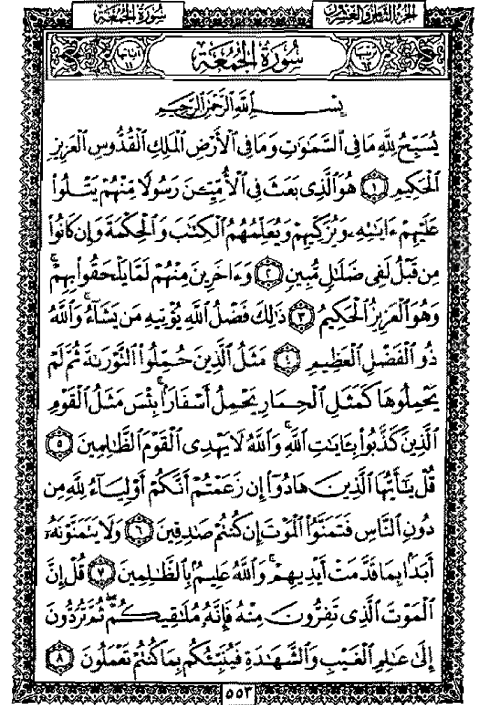 سُورَةُ الجُمُعَةِ
الجُزْءُ الثَّامِنُ وَالعِشْرُونَ
سُورَةُ الجُمُعَةِ
بِسْمِ ٱللَّهِ ٱلرَّحْمَٰنِ ٱلرَّحِيمِ
يُسَبِّحُ لِلَّهِ مَا فِي ٱلسَّمَٰوَٰتِ وَمَا فِي ٱلْأَرْضِ ٱلْمَلِكِ ٱلْقُدُّوسِ ٱلْعَزِيزِ
ٱلْحَكِيمِ ١ هُوَ ٱلَّذِي بَعَثَ فِي ٱلْأُمِّيِّـۧنَ رَسُولًا مِّنْهُمْ يَتْلُوا۟
عَلَيْهِمْ ءَايَٰتِهِۦ وَيُزَكِّيهِمْ وَيُعَلِّمُهُمُ ٱلْكِتَٰبَ وَٱلْحِكْمَةَ وَإِن كَانُوا۟
مِن قَبْلُ لَفِي ضَلَٰلٍ مُّبِينٍ ٢ وَءَاخَرِينَ مِنْهُمْ لَمَّا يَلْحَقُوا۟ بِهِمْ ۚ
وَهُوَ ٱلْعَزِيزُ ٱلْحَكِيمُ ٣ ذَٰلِكَ فَضْلُ ٱللَّهِ يُؤْتِيهِ مَن يَشَآءُ ۚ وَٱللَّهُ
ذُو ٱلْفَضْلِ ٱلْعَظِيمِ ٤ مَثَلُ ٱلَّذِينَ حُمِّلُوا۟ ٱلتَّوْرَىٰةَ ثُمَّ لَمْ
يَحْمِلُوهَا كَمَثَلِ ٱلْحِمَارِ يَحْمِلُ أَسْفَارًۢا ۚ بِئْسَ مَثَلُ ٱلْقَوْمِ
ٱلَّذِينَ كَذَّبُوا۟ بِـَٔايَٰتِ ٱللَّهِ ۚ وَٱللَّهُ لَا يَهْدِي ٱلْقَوْمَ ٱلظَّٰلِمِينَ ٥
قُلْ يَٰٓأَيُّهَا ٱلَّذِينَ هَادُوٓا۟ إِن زَعَمْتُمْ أَنَّكُمْ أَوْلِيَآءُ لِلَّهِ مِن
دُونِ ٱلنَّاسِ فَتَمَنَّوُا۟ ٱلْمَوْتَ إِن كُنتُمْ صَٰدِقِينَ ٦ وَلَا يَتَمَنَّوْنَهُۥٓ
أَبَدًۢا بِمَا قَدَّمَتْ أَيْدِيهِمْ ۚ وَٱللَّهُ عَلِيمٌۢ بِٱلظَّٰلِمِينَ ٧ قُلْ إِنَّ
ٱلْمَوْتَ ٱلَّذِي تَفِرُّونَ مِنْهُ فَإِنَّهُۥ مُلَٰقِيكُمْ ۖ ثُمَّ تُرَدُّونَ
إِلَىٰ عَٰلِمِ ٱلْغَيْبِ وَٱلشَّهَٰدَةِ فَيُنَبِّئُكُم بِمَا كُنتُمْ تَعْمَلُونَ ٨
٥٥٣